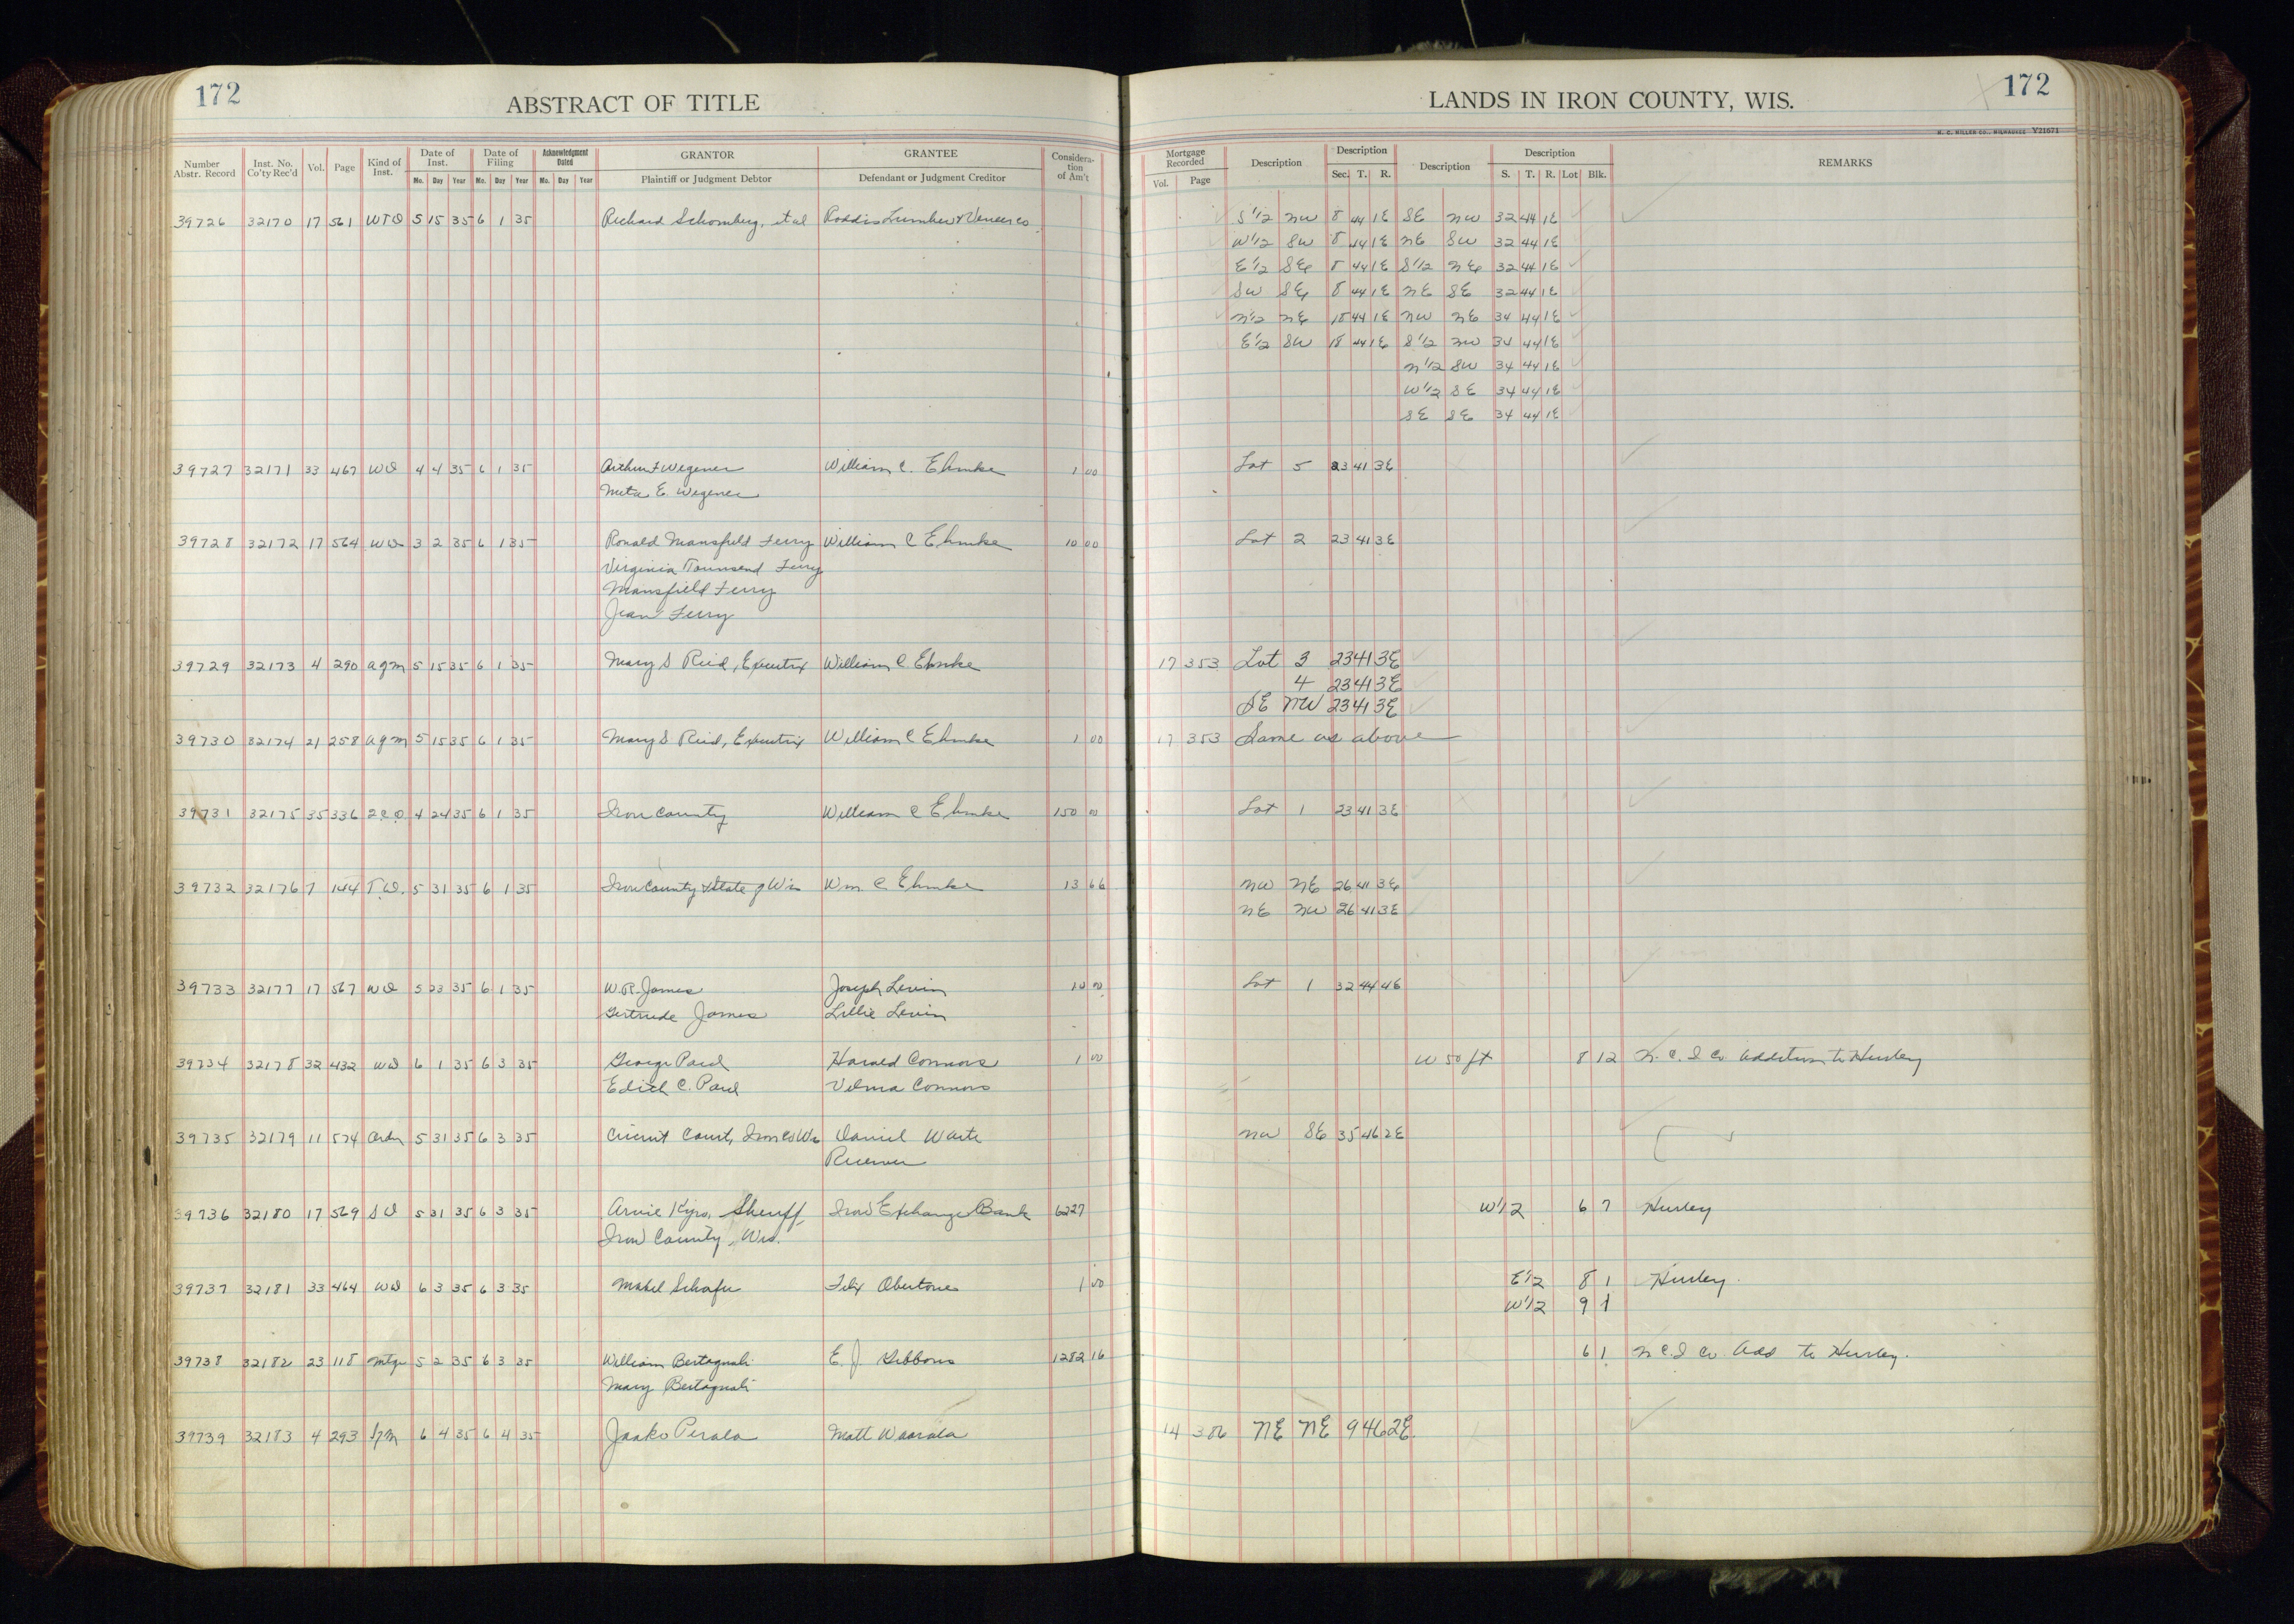 172
ABSTRACT OF TITLE
LANDS IN IRON COUNTY, WIS.
172
H. C. MILLER CO., MILWAUKEE Y21671
Number Abstr. Record Inst. No. Co'ty Rec'd Vol. Page Kind of Inst. Date of Inst. Mo. Day Year Date of Filing Mo. Day Year Acknowledgment Dated Mo. Day Year GRANTOR Plaintiff or Judgment Debtor GRANTEE Defendant or Judgment Creditor Consideration of Am't Mortgage Recorded Vol. Page Description Description Sec. T. R. Description Description S. T. R. Lot Blk. REMARKS
39726 32170 17 561 WTD 5 15 35 6 1 35 Richard Schomberg, et al Roddis Lumber & Veneer Co. S 1/2 NW 8 44 1E SE NW 32 44 1E
W 1/2 SW 8 44 1E NE SW 32 44 1E
E 1/2 SE 8 44 1E S 1/2 NE 32 44 1E
SW SE 8 44 1E NE SE 32 44 1E
N 1/2 NE 18 44 1E NW NE 34 44 1E
E 1/2 SW 18 44 1E S 1/2 NW 34 44 1E
N 1/2 SW 34 44 1E
W 1/2 SE 34 44 1E
SE SE 34 44 1E
39727 32171 33 467 WD 4 4 35 6 1 35 Arthur F Wegener William C. Ehmke 1 00 Lot 5 23 41 3E
Meta E. Wegener
39728 32172 17 564 WD 3 2 35 6 1 35 Ronald Mansfield Ferry William C Ehmke 10 00 Lot 2 23 41 3E
Virginia Townsend Ferry
Mansfield Ferry
Jean Ferry
39729 32173 4 290 agm 5 15 35 6 1 35 Mary S Reid, Executrix William C Ehmke 17 353 Lot 3 23 41 3E
4 23 41 3E
SE NW 23 41 3E
39730 32174 21 258 agm 5 15 35 6 1 35 Mary S. Reid, Executrix William C Ehmke 1 00 17 353 Same as above
39731 32175 35 336 2CD 4 24 35 6 1 35 Iron County William C Ehmke 150 00 Lot 1 23 41 3E
39732 32176 7 144 T.D. 5 31 35 6 1 35 Iron County & State of Wis Wm C Ehmke 13 66 NW NE 26 41 3E
NE NW 26 41 3E
39733 32177 17 567 WD 5 23 35 6 1 35 W.R. James Joseph Levin 10 00 Lot 1 32 44 4E
Gertrude James Lillie Levin
39734 32178 32 432 WD 6 1 35 6 3 35 George Paul Harold Connors 1 00 W 50 ft 8 12 N. C. I Co. Addition to Hurley
Edith C. Paul Velma Connors
39735 32179 11 574 Order 5 31 35 6 3 35 Circuit Court, Iron Co Wis Daniel Waite NW SE 35 46 2E
Receiver
39736 32180 17 569 SD 5 31 35 6 3 35 Arvie Kyro, Sheriff Iron Exchange Bank 6227 W 1/2 6 7 Hurley
Iron County, Wis.
39737 32181 33 464 WD 6 3 35 6 3 35 Mabel Schafer Felix Obertones 1 00 E 1/2 8 1 Hurley.
W 1/2 9 1
39738 32182 23 118 Mtge 5 2 35 6 3 35 William Bertagnoli E. J. Gibbons 1282 16 6 1 N C. I Co. Add to Hurley.
Mary Bertagnoli
39739 32183 4 293 6 4 35 6 4 35 Jaako Perala Matt Waarala 14 386 NE NE 9 46 2E